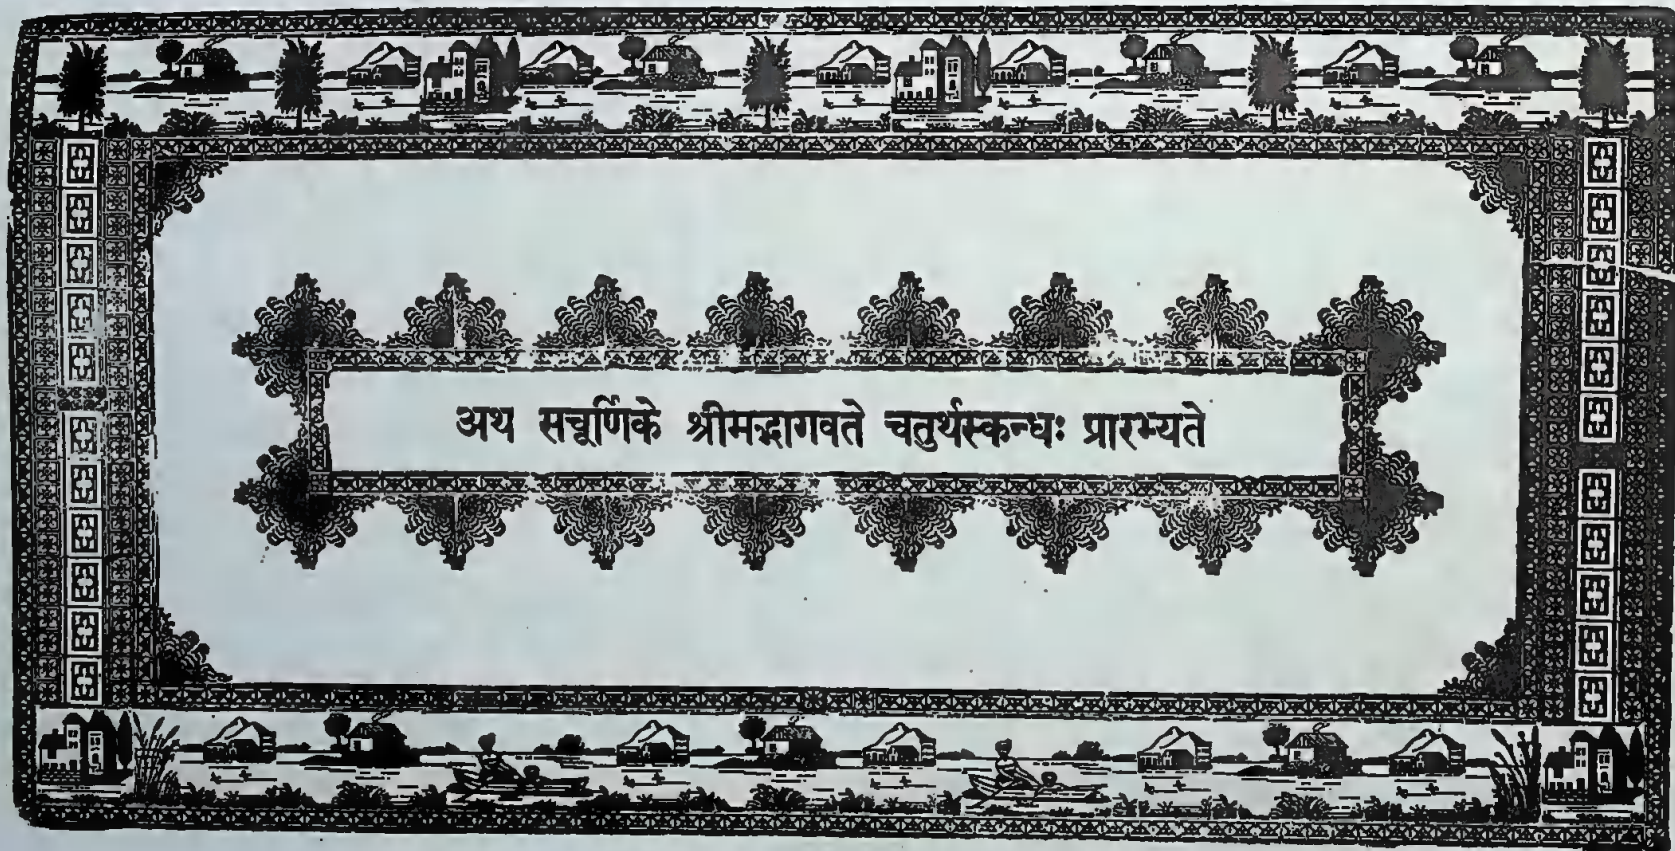 अथ सचूर्णिके श्रीमद्भागवते चतुर्थस्कन्धः प्रारभ्यते